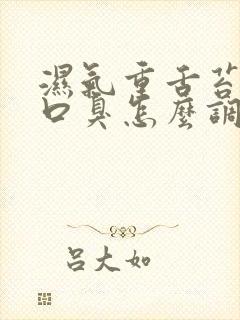 濕氣重舌苔
口臭怎麼調
吕大如